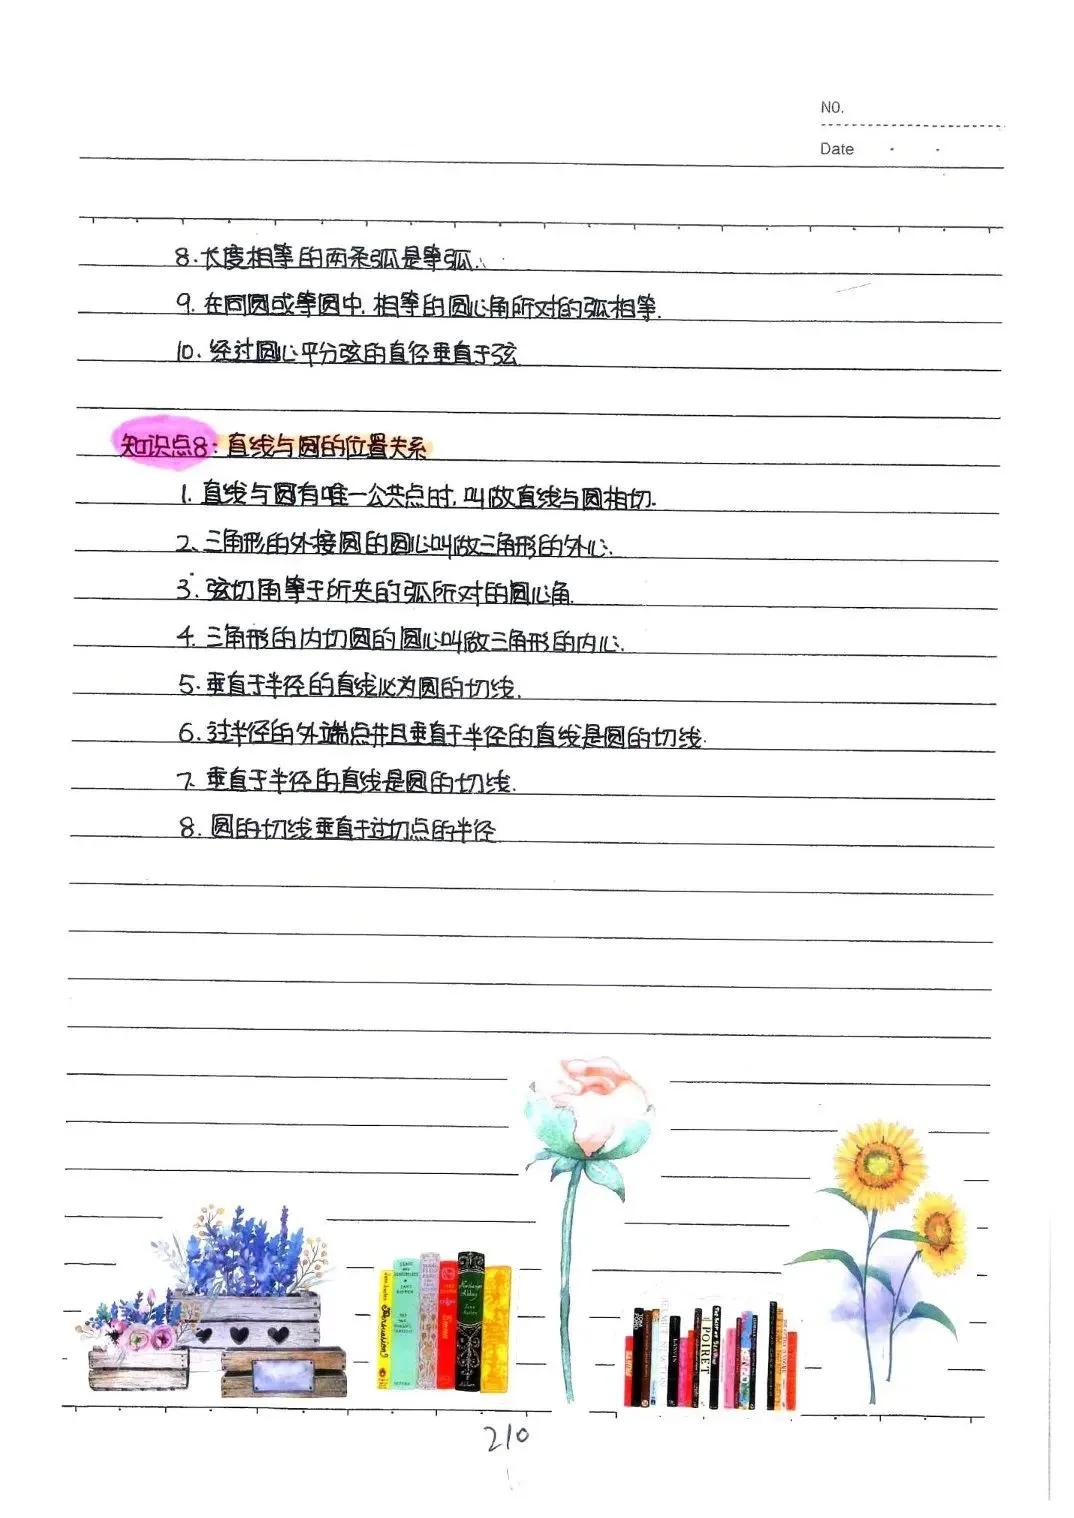 NO.
Date
8.长度相等的两条弧是等弧.
9.在同圆或等圆中,相等的圆心角所对的弧相等.
10.经过圆心平分弦的直径垂直于弦.
知识点8:直线与圆的位置关系
1.直线与圆有唯一公共点时,叫做直线与圆相切.
2.三角形的外接圆的圆心叫做三角形的外心.
3.弦切角等于所夹的弧所对的圆心角.
4.三角形的内切圆的圆心叫做三角形的内心.
5.垂直于半径的直线必为圆的切线.
6.过半径的外端点并且垂直于半径的直线是圆的切线.
7.垂直于半径的直线是圆的切线.
8.圆的切线垂直于过切点的半径.
Persuasion
Emma
Northanger Abbey
LANVIN
POIRET
210